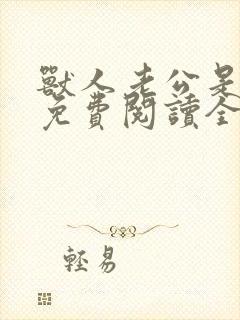 獸人老公是
免費閱讀全
輕易